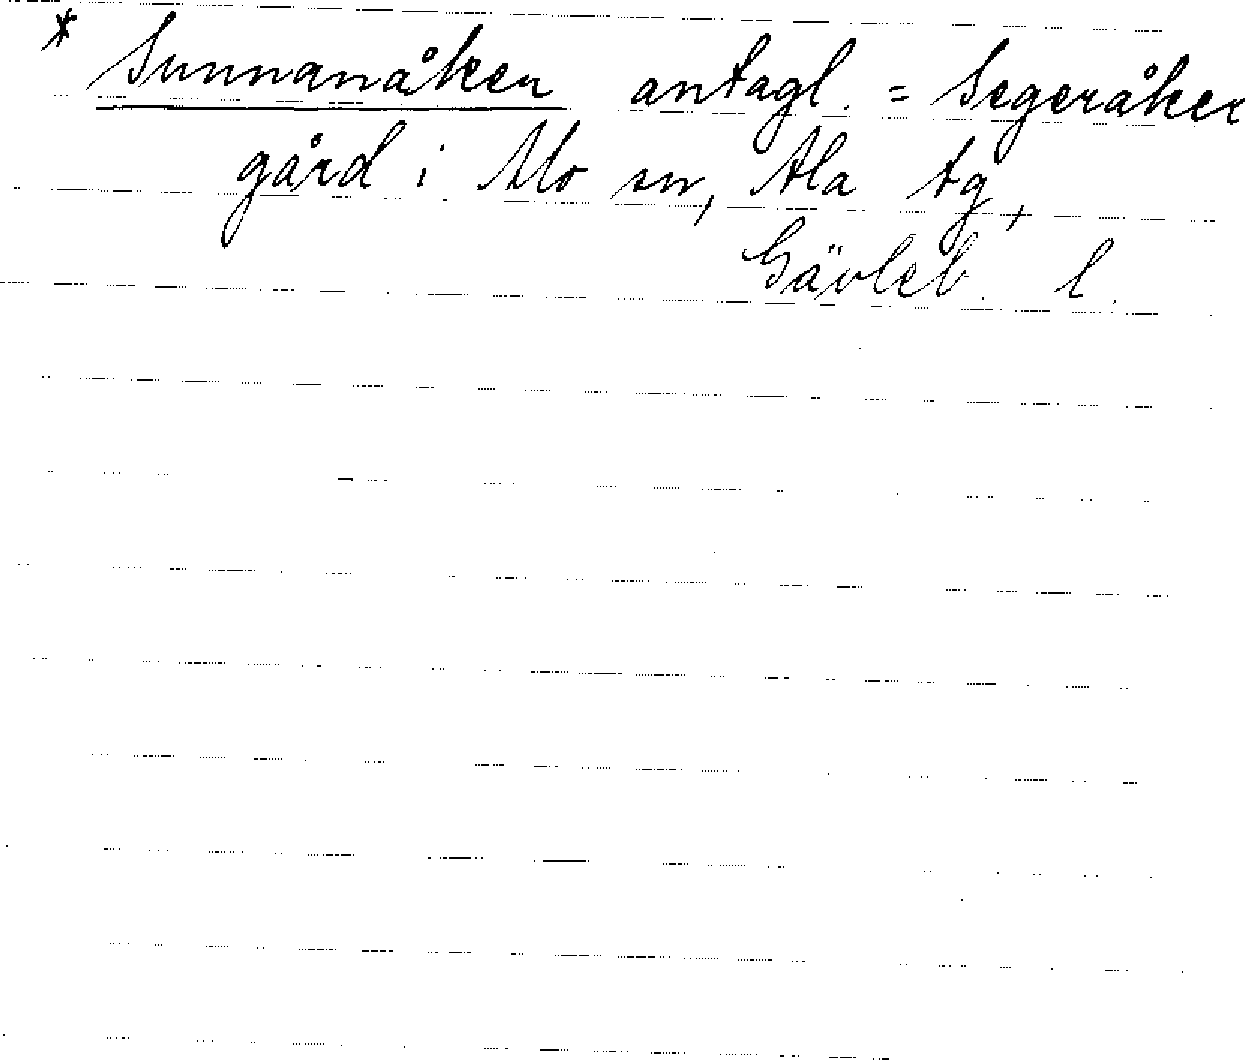 * Sunnanåker antagl. = Segeråker
gård i Mo sn, Ala tg,
Gävleb. l.